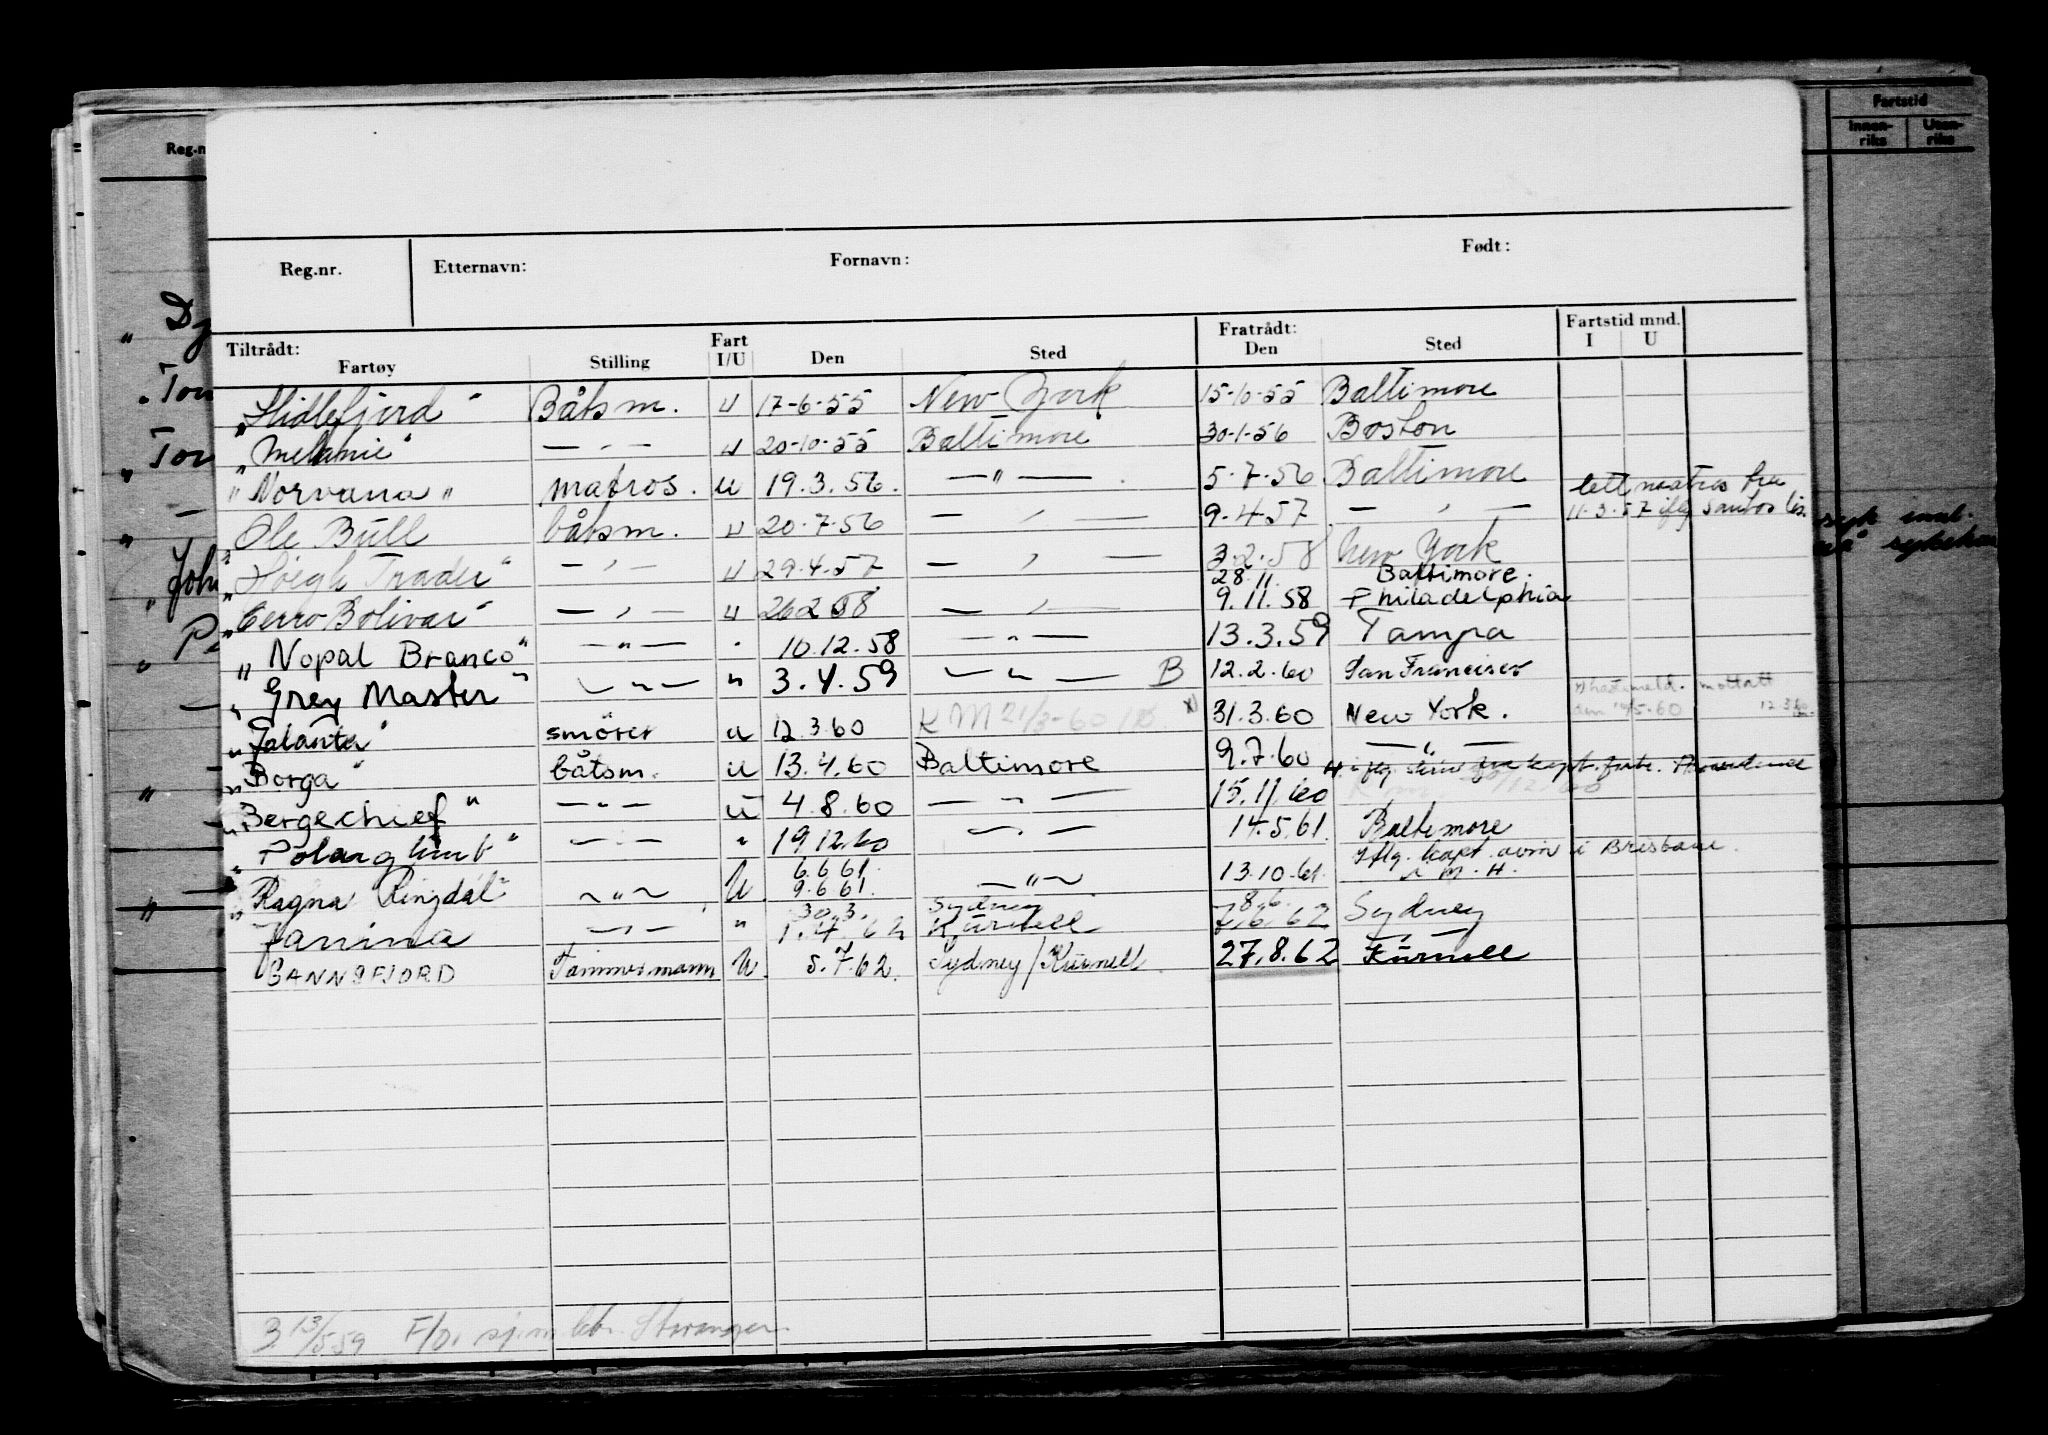 Fartstid
Innen-riks Uten-riks
Reg.n
Reg.nr. Etternavn: Fornavn: Født:
Tiltrådt: Fratrådt: Fartstid mnd.
Fartøy Stilling Fart I/U Den Sted Den Sted I U
"Hidlefjord" Båtsm. U 17-6-55 New York 15-10-55 Baltimore
"Melanie" — " — U 20-10-55 Baltimore 30-1-56 Boston
"Norvana" matros. U 19.3.56. — " — 5-7-56 Baltimore lett matros fra
Ole Bull båtsm. U 20-7-56 — " — 9-4-57 — " — 11-3-57 iflg santos lis.
"Høegh Trader" — " — U 29-4-57 — " — 3.2.58 New York
28.11. Baltimore.
"Cerro Bolivar" — " — U 26.2.58 — " — 9.11.58 Philadelphia
"Nopal Branco" — " — " 10.12.58 — " — 13.3.59 Tampa
"Grey Master" — " — " 3.4.59 — " — B 12.2.60 San Francisco
x) hastemeld. mottatt
"Jalanta" smörer U 12.3.60 KM 21/3-60 x) 31.3.60 New York.
"Borga" båtsm. U 13.4.60 Baltimore 9.7.60 — " —
"Bergechief" — " — U 4.8.60 — " — 15.11.60
"Polarglimt" — " — " 19.12.60 — " — 14.5.61. Baltimore
6.6.61. Iflg. kapt. avm i Brisbane.
"Ragna Ringdal" — " — U 9.6.61. — " — 13.10.61. i M.H.
30.3. Sydney 8.6.
"Janina — " — " 1.4.62 Kurnell 7.6.62 Sydney
SANNSFJORD Tømmermann U. 5.7.62. Sydney/Kurnell 27.8.62 Kurnell
B 13/5 59 F/O. sj.m.ktr. Stavanger